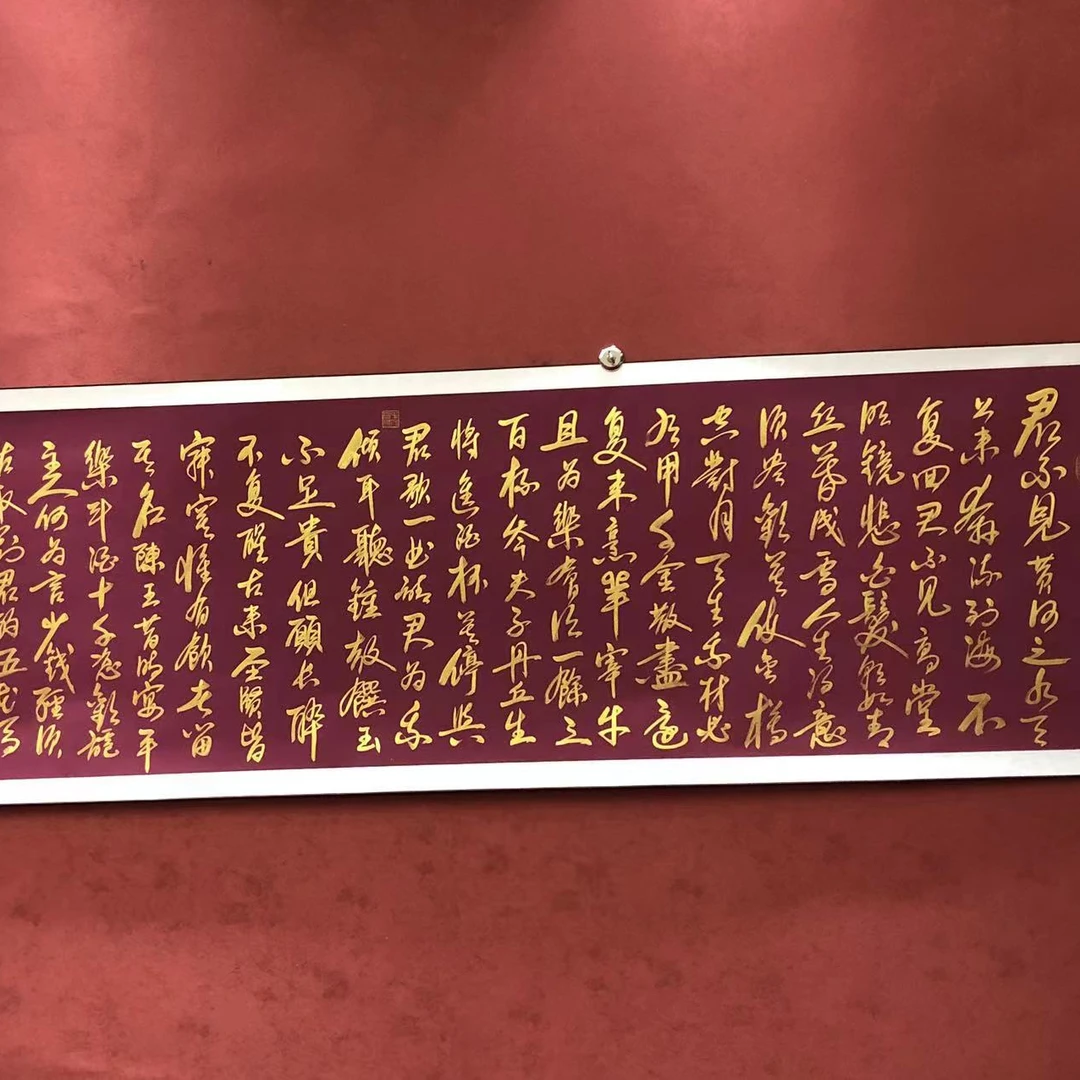 君不見黄河之水天
上来奔流到海不
复回君不见高堂
明鏡悲白髮朝如青
丝暮成雪人生得意
須尽歡莫使金樽
空對月天生我材必
有用千金散盡還
复来烹羊宰牛
且为樂會須一飲三
百杯岑夫子丹丘生
将進酒杯莫停与
君歌一曲請君为我
傾耳聽鐘鼓饌玉
不足貴但願长醉
不复醒古来圣賢皆
寂寞惟有飲者留
其名陳王昔时宴平
樂斗酒十千恣歡謔
主人何为言少錢徑須
沽取對君酌五花馬